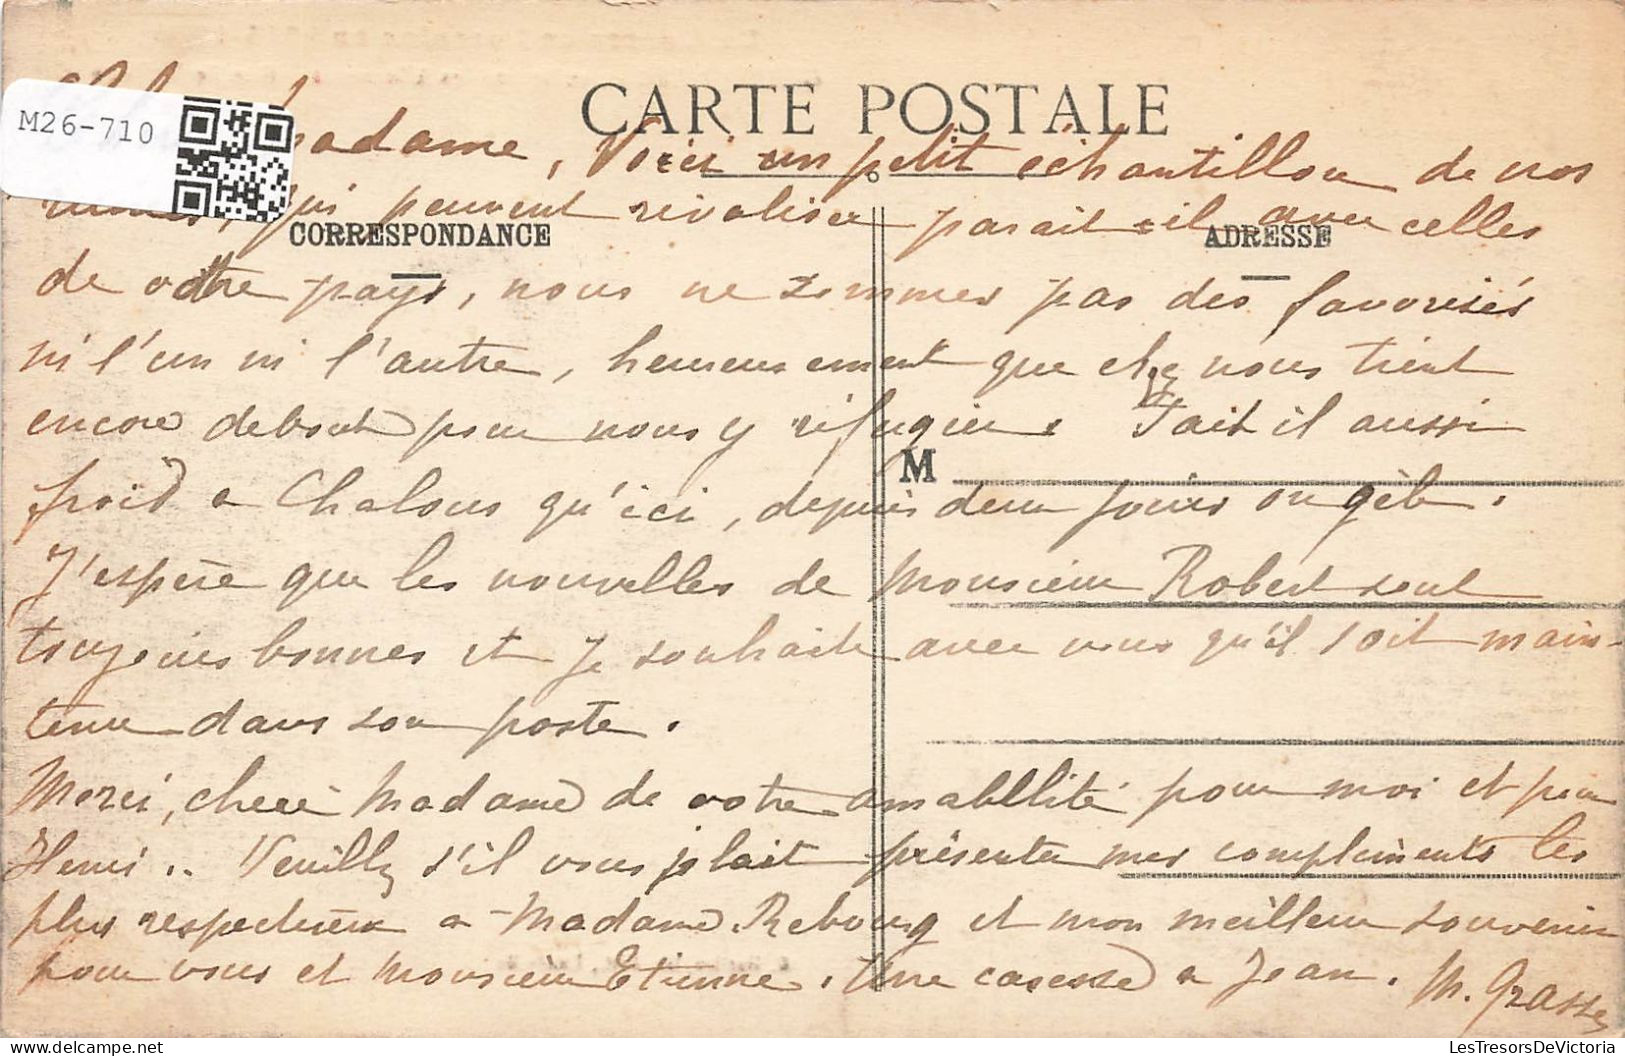 M26-710
CARTE POSTALE
Madame, Voici un petit échantillon de nos
qui peuvent rivaliser parait-il avec celles
CORRESPONDANCE
ADRESSE
de votre pays, nous ne sommes pas des favorisés
ni l'un ni l'autre, heureusement que chez nous tient
encore debout pour nous y réfugier. Fait il aussi
M
froid a Chalons qu'ici, depuis deux jours on gèle.
J'espère que les nouvelles de Monsieur Robert sont
toujours bonnes et je souhaite avec vous qu'il soit main-
tenu dans son poste.
Merci, chere Madame de votre amabllité pour moi et pour
Henri.. Veuillez s'il vous plait présenter mes compliments les
plus respectueux a Madame Rebourg et mon meilleur souvenir
pour vous et Monsieur Etienne. Une caresse a Jean. M. Grasse
LesTresorsDeVictoria